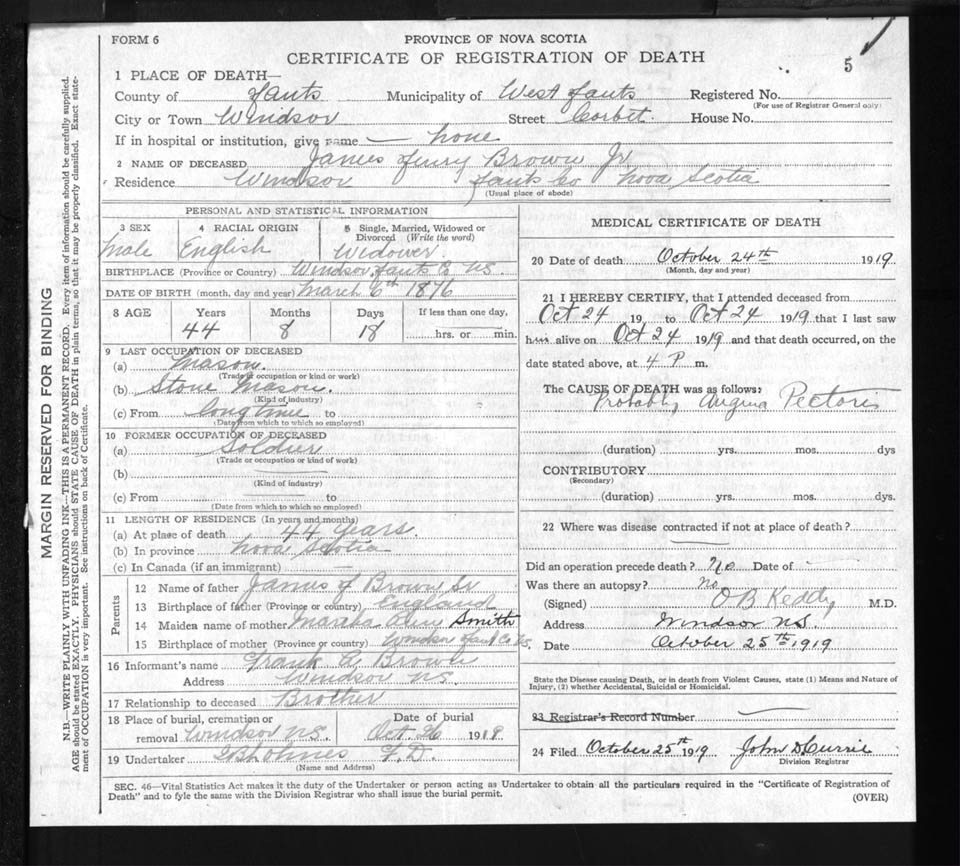 FORM 6
PROVINCE OF NOVA SCOTIA
CERTIFICATE OF REGISTRATION OF DEATH
5
1 PLACE OF DEATH—
County of Hants Municipality of West Hants Registered No.
(For use of Registrar General only)
City or Town Windsor Street Corbet. House No.
If in hospital or institution, give name — none
2 NAME OF DECEASED James Henry Brown Jr
Residence Windsor Hants Co Nova Scotia
(Usual place of abode)
MARGIN RESERVED FOR BINDING
N.B.—WRITE PLAINLY WITH UNFADING INK—THIS IS A PERMANENT RECORD. Every item of information should be carefully supplied.
AGE should be stated EXACTLY. PHYSICIANS should STATE CAUSE OF DEATH in plain terms, so that it may be properly classified. Exact state-
ment of OCCUPATION is very important. See instructions on back of Certificate.
PERSONAL AND STATISTICAL INFORMATION
3 SEX 4 RACIAL ORIGIN 5 Single, Married, Widowed or
Divorced (Write the word)
Male English Widower
BIRTHPLACE (Province or Country) Windsor, Hants Co NS.
DATE OF BIRTH (month, day and year) March 6th 1876
8 AGE Years Months Days If less than one day,
44 8 18 hrs. or min.
9 LAST OCCUPATION OF DECEASED
(a) Mason.
(Trade or occupation or kind or work)
(b) Stone Mason.
(Kind of industry)
(c) From long time to
(Date from which to which so employed)
10 FORMER OCCUPATION OF DECEASED
(a) Soldier
(Trade or occupation or kind of work)
(b)
(Kind of industry)
(c) From to
(Date from which to which so employed)
11 LENGTH OF RESIDENCE (In years and months)
(a) At place of death 44 years.
(b) In province Nova Scotia
(c) In Canada (if an immigrant) —
Parents
12 Name of father James H Brown Sr
13 Birthplace of father (Province or country) England
14 Maiden name of mother Martha Smith
15 Birthplace of mother (Province or country) Windsor Hants Co NS.
16 Informant's name Frank Brown
Address Windsor NS.
17 Relationship to deceased Brother
18 Place of burial, cremation or Date of burial
removal Windsor NS. Oct. 26 1919
19 Undertaker F.D.
(Name and Address)
MEDICAL CERTIFICATE OF DEATH
20 Date of death October 24th 1919
(Month, day and year)
21 I HEREBY CERTIFY, that I attended deceased from
Oct 24 19 to Oct 24 1919 that I last saw
him alive on Oct 24 1919 and that death occurred, on the
date stated above, at 4 P m.
The CAUSE OF DEATH was as follows:
Probably Angina Pectoris
(duration) yrs. mos. dys
CONTRIBUTORY
(Secondary)
(duration) yrs. mos. dys.
22 Where was disease contracted if not at place of death?
Did an operation precede death? No Date of
Was there an autopsy? no
(Signed) O B Keddy M.D.
Address Windsor NS.
Date October 25th 1919
State the Disease causing Death, or in death from Violent Causes, state (1) Means and Nature of
Injury, (2) whether Accidental, Suicidal or Homicidal.
23 Registrar's Record Number
24 Filed October 25th 1919 John D Currie
Division Registrar
SEC. 46—Vital Statistics Act makes it the duty of the Undertaker or person acting as Undertaker to obtain all the particulars required in the "Certificate of Registration of
Death" and to fyle the same with the Division Registrar who shall issue the burial permit.
(OVER)